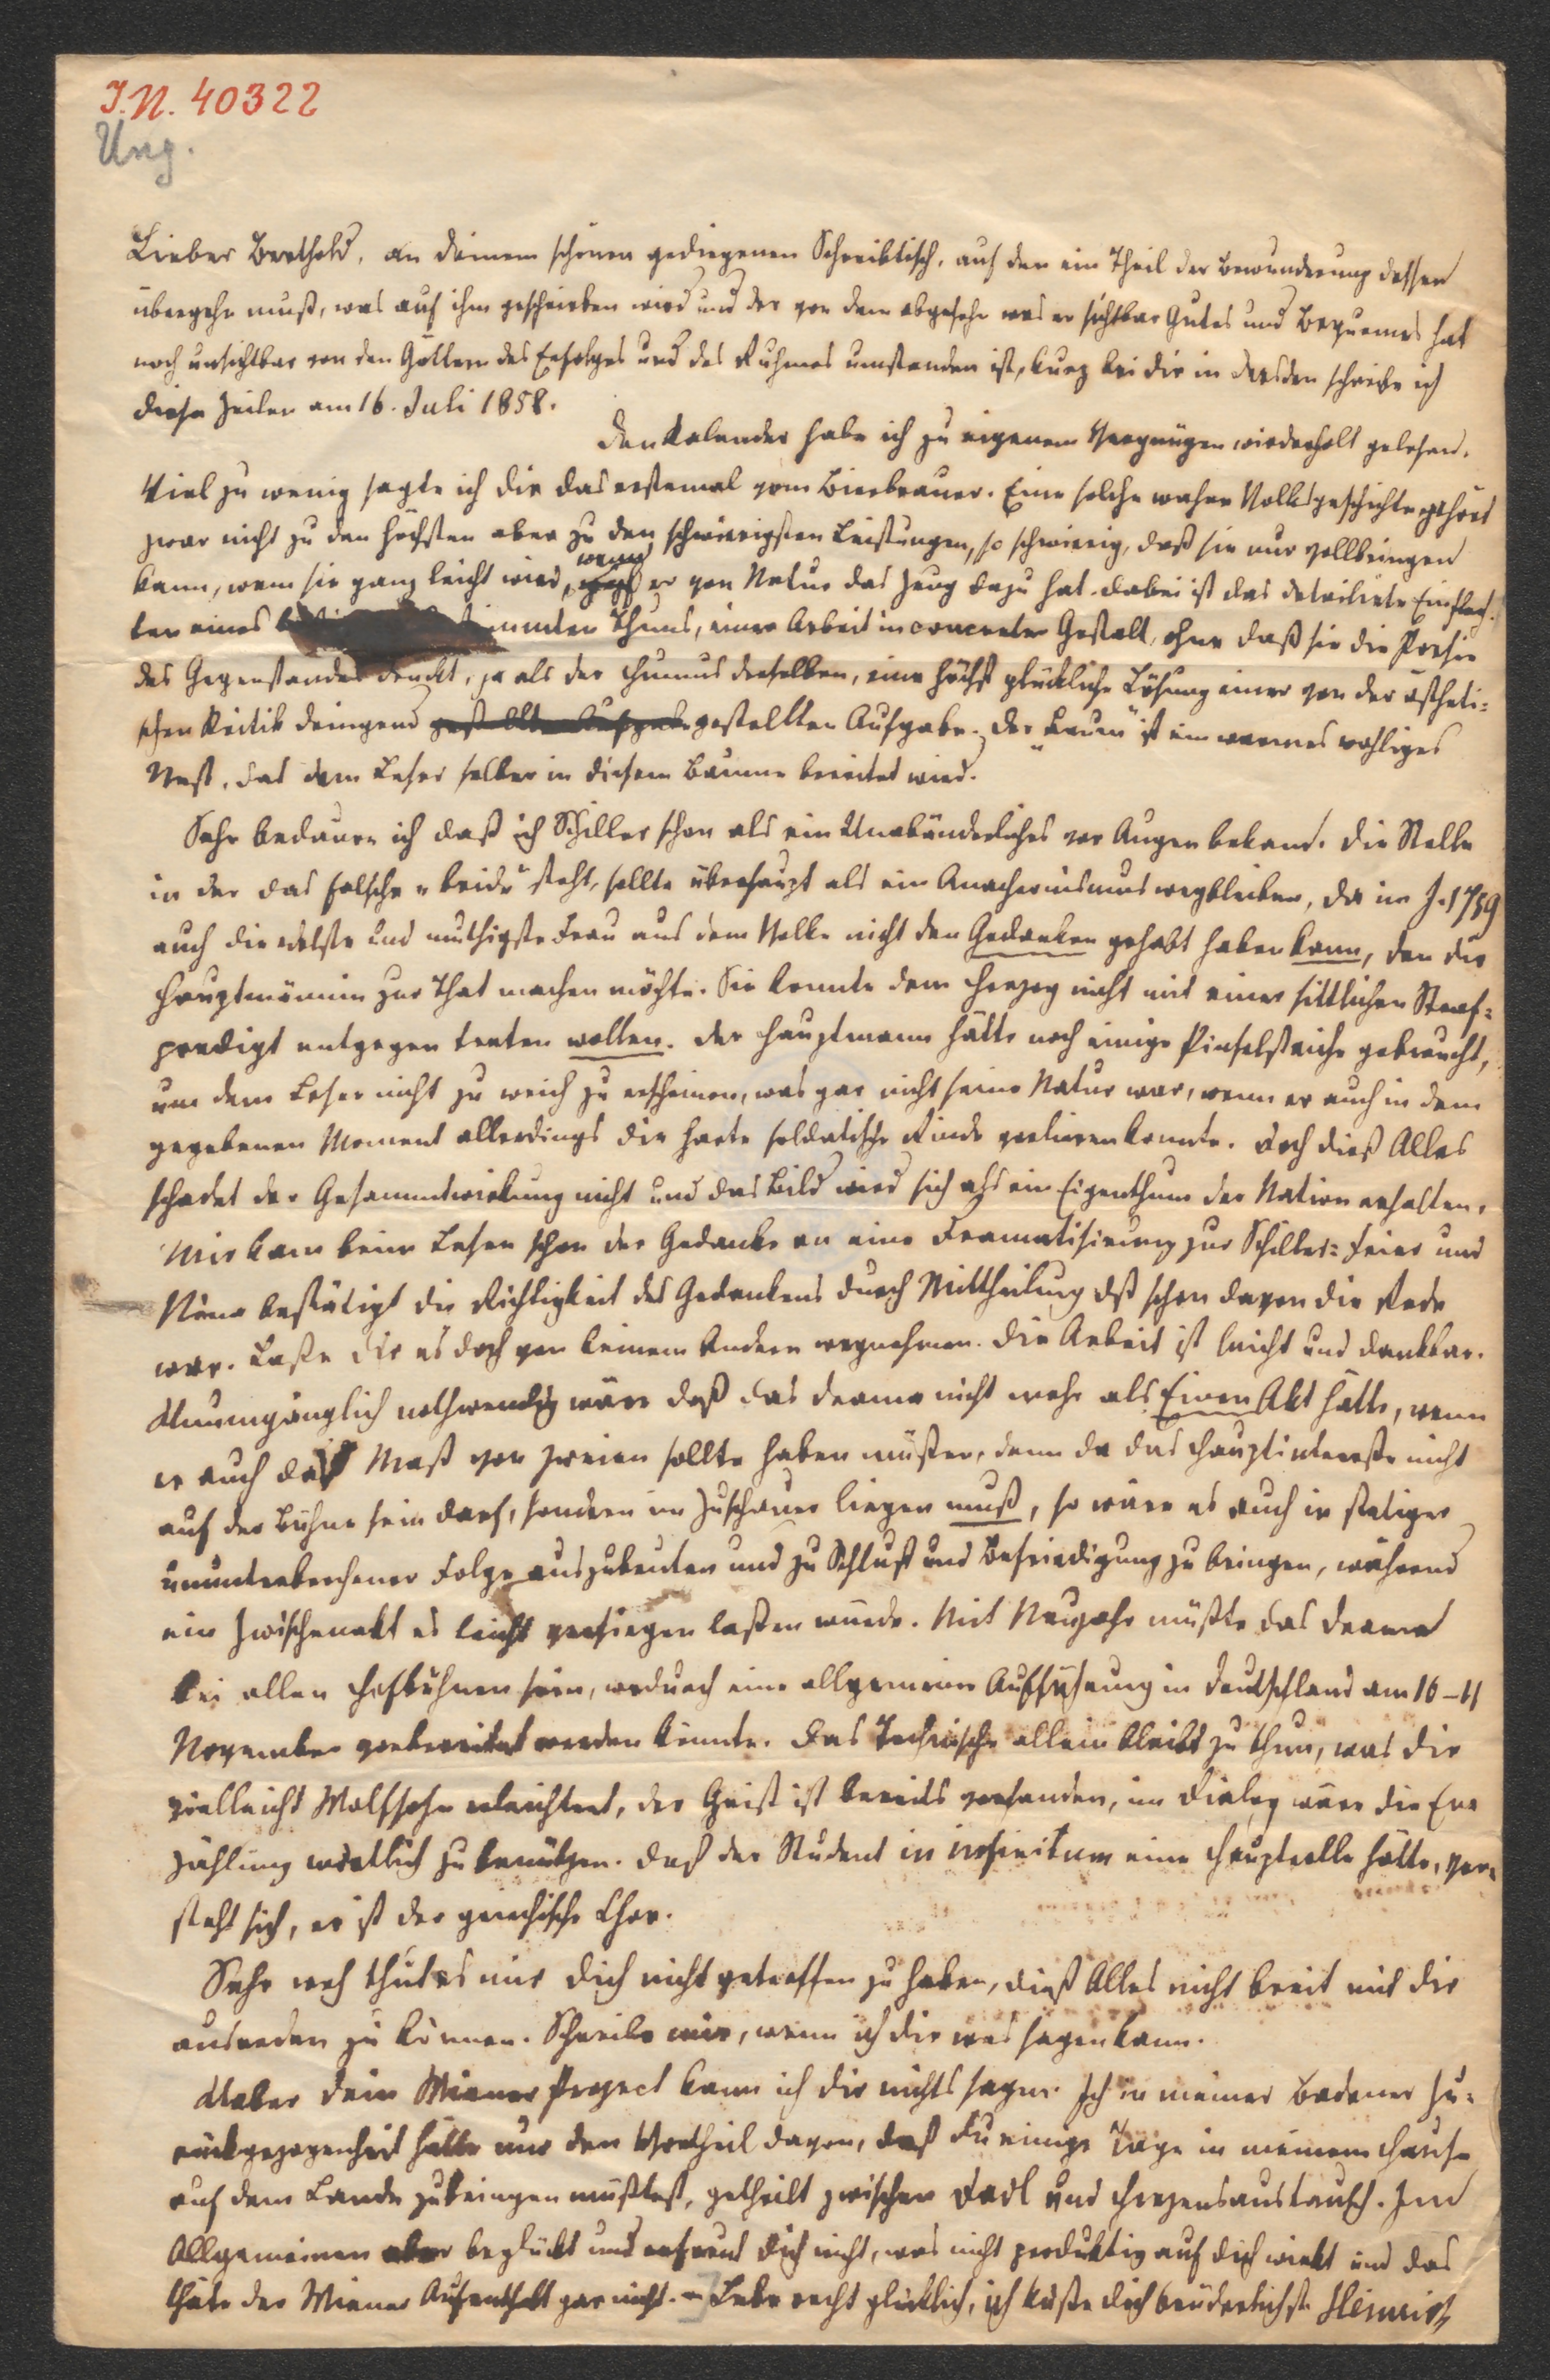 I.N. 40322
Ung.
Lieber Berthold, an deinem schönen gediegenen Schreibtisch, auf den ein Theil der Bewunderung dessen
übergehn muß, was auf ihm geschrieben wird und der von dem abgesehn was er sichtbar Gutes und Bequemes hat
noch unsichtbar von den Göttern des Erfolges und des Ruhmes umstanden ist, kurz bei dir in Dresden schreibe ich
diese Zeilen am 16. Juli 1858.
Den Kalender habe ich zu eigenem Vergnügen wiederholt gelesen.
Viel zu wenig sagte ich dir das erstemal vom Bierbrauer. Eine solche wahre Volksgeschichte gehört
zwar nicht zu den höchsten aber zu den schwierigsten Leistungen, so schwierig, daß sie nur vollbringen
kann, wem sie ganz leicht wird, wenn er von Natur das Zeug dazu hat. Dabei ist das detailirte Einflech-
ten eines immten Thuns, einer Arbeit in concreter Gestalt, ohne daß sie die Poesie
des Gegenstandes drückt, ja als der Humus derselben, eine höchst glückliche Lösung einer von der ästheti-
schen Kritik dringend gestellten Aufgabe gestellten Aufgabe. Der „Baum“ ist ein warmes wohliges
Nest, das dem Leser selber in diesem Baume bereitet wird.
Sehr bedaure ich daß ich Schiller schon als ein Unabänderliches vor Augen bekam. Die Stelle
in der das falsche „beide“ steht, sollte überhaupt als ein Anachronismus wegbleiben, da im J. 1759
auch die edelste und muthigste Frau aus dem Volke nicht den Gedanken gehabt haben kann, den die
Hauptmännin zur That machen möchte. Sie konnte dem Herzog nicht mit einer sittlichen Straf-
predigt entgegen treten wollen. Der Hauptmann hätte noch einige Pinselstriche gebraucht,
um dem Leser nicht zu weich zu erscheinen, was gar nicht seine Natur war, wenn er auch in dem
gegebenen Moment allerdings die harte soldatische Rinde verlieren konnte. Doch dieß Alles
schadet der Gesammtwirkung nicht und das Bild wird sich als ein Eigenthum der Nation erhalten.
Mir kam beim Lesen schon der Gedanke an eine Dramatisirung zur Schiller-Feier und
Nina bestätigt die Richtigkeit des Gedankens durch Mittheilung dß schon davon die Rede
war. Laße dir es doch von keinem Andern wegnehmen. Die Arbeit ist leicht und dankbar.
Unumgänglich nothwendig wäre daß das Drama nicht mehr als Einen Akt hätte, wenn
er auch das Maß von zweien sollte haben müßen, denn da das Hauptinteresse nicht
auf der Bühne sein darf, sondern im Zuschauer liegen muß, so wäre es auch in stetiger
ununterbrochener Folge auszubeuten und zu Schluß und Befriedigung zu bringen, während
ein Zwischenakt es leicht versiegen laßen würde. Mit Neujahr müßte das Drama
bei allen Hofbühnen sein, wodurch eine allgemeine Aufführung in Deutschland am 10–11
November vorbereitet werden könnte. Das Technische allein bleibt zu thun, was dir
vielleicht Wolfsohn erleichtert, der Geist ist bereits vorhanden, im Dialog wäre die Er-
zählung wörtlich zu benützen. Daß der Student in infinitum eine Hauptrolle hätte, ver-
steht sich, er ist der griechische Chor.
Sehr weh thut es mir dich nicht getroffen zu haben, dieß Alles nicht breit mit dir
ausreden zu können. Schreibe mir, wenn ich dir was sagen kann.
Ueber dein Wiener Project kann ich dir nichts sagen. Ich in meiner Badener Zu-
rückgezogenheit hätte nur den Vortheil davon, daß Du einige Tage in meinem Hause
auf dem Lande zubringen müßtest, getheilt zwischen und Herzensaustausch. Im
Allgemeinen aber beglückt und erfreut dich nicht, was nicht produktiv auf dich wirkt und das
thäte der Wiener Aufenthalt gar nicht. – Lebe recht glücklich, ich küße dich brüderlichst Heinrich